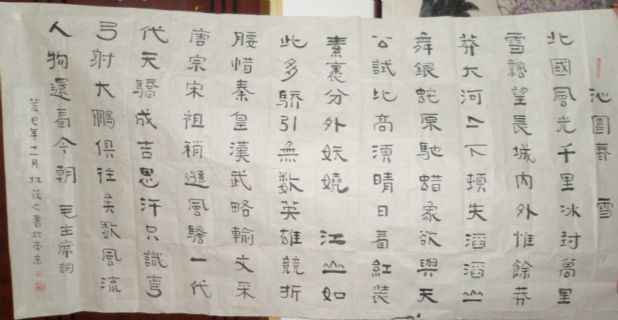 沁園春 雪
北國風光千里冰封萬里
雪飄望長城內外惟餘莽
莽大河上下頓失滔滔山
舞銀蛇原馳蜡象欲與天
公試比高須晴日看紅装
素裹分外妖嬈 江山如
此多驕引無数英雄競折
腰惜秦皇漢武略輸文采
唐宗宋祖稍遜風騷一代
代天驕成吉思汗只識彎
弓射大鵬俱往矣数風流
人物還看今朝 毛主席詞
癸巳年十一月